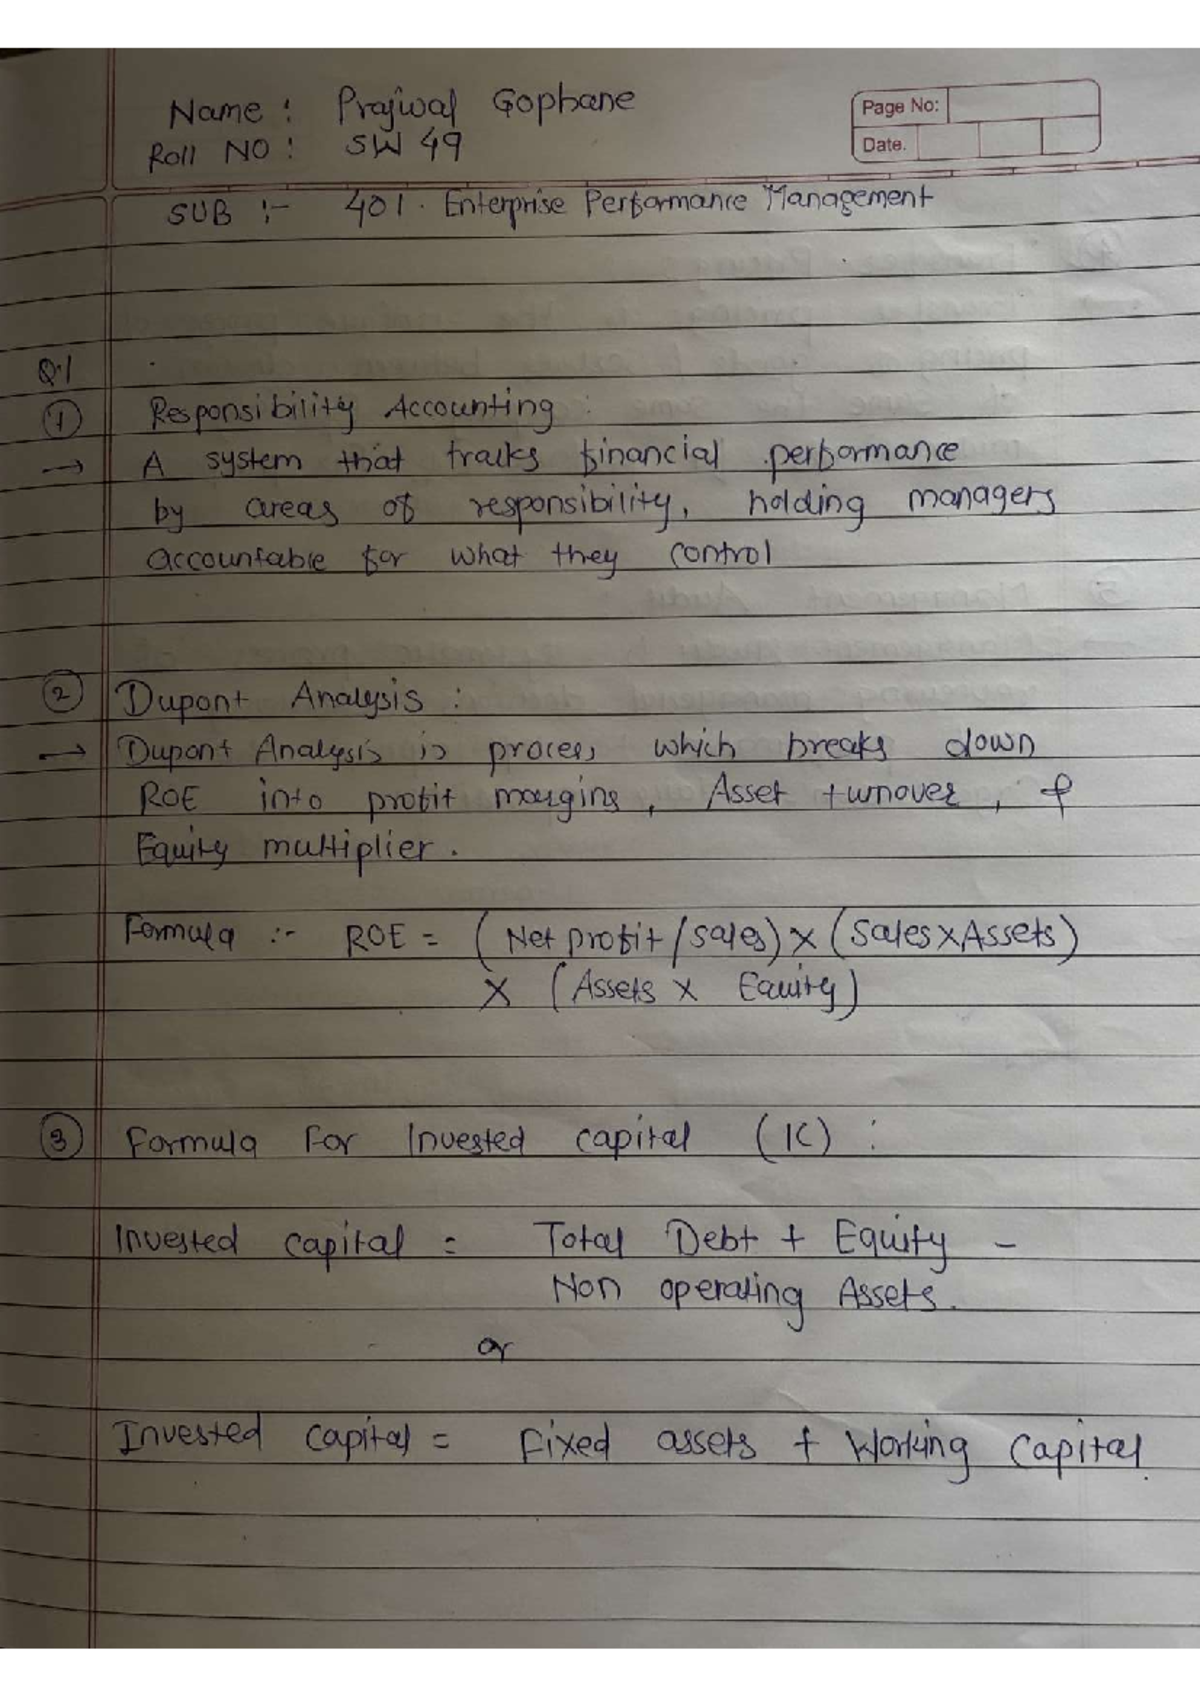 Name : Prajwal Gophane
Page No:
Roll NO : SW 49
Date.
SUB :- 401. Enterprise Performance Management
Q.1
① Responsibility Accounting :
→ A system that tracks financial performance
by areas of responsibility, holding managers
accountable for what they control
② Dupont Analysis :
→ Dupont Analysis is process which breaks down
ROE into profit margins, Asset turnover, &
Equity multiplier.
Formula :- ROE = (Net profit / sales) × (Sales × Assets)
× (Assets × Equity)
③ Formula For Invested capital (IC) :
Invested capital = Total Debt + Equity -
Non operating Assets.
or
Invested capital = Fixed assets + Working Capital.